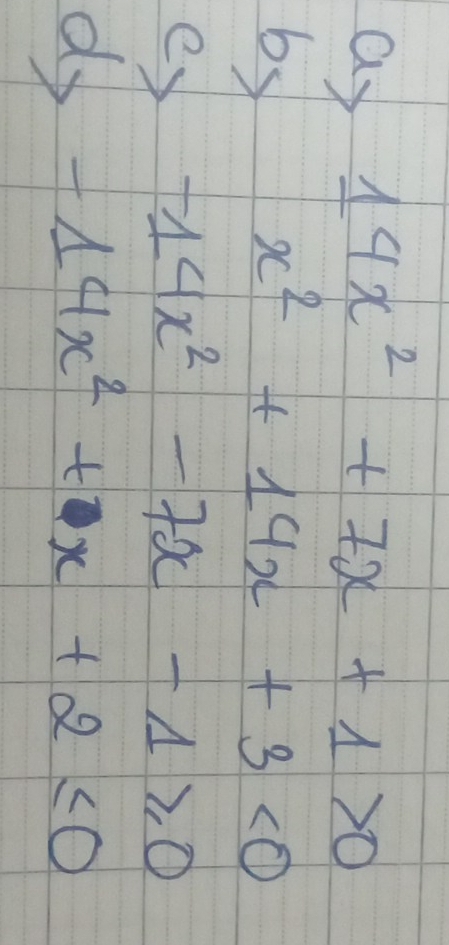 a→ 14x² + 7x + 1 >0
b→ x² + 14x + 3 <0
c→ -14x² - 7x - 1 ≥0
d→ -14x² + x + 2 ≤0